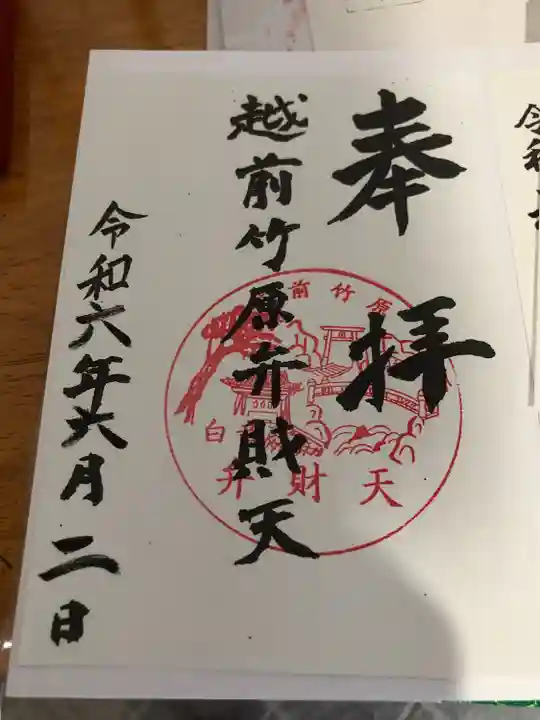 奉拝
越前竹原弁財天
令和六年六月二日
前竹原
白
弁財天
令和六